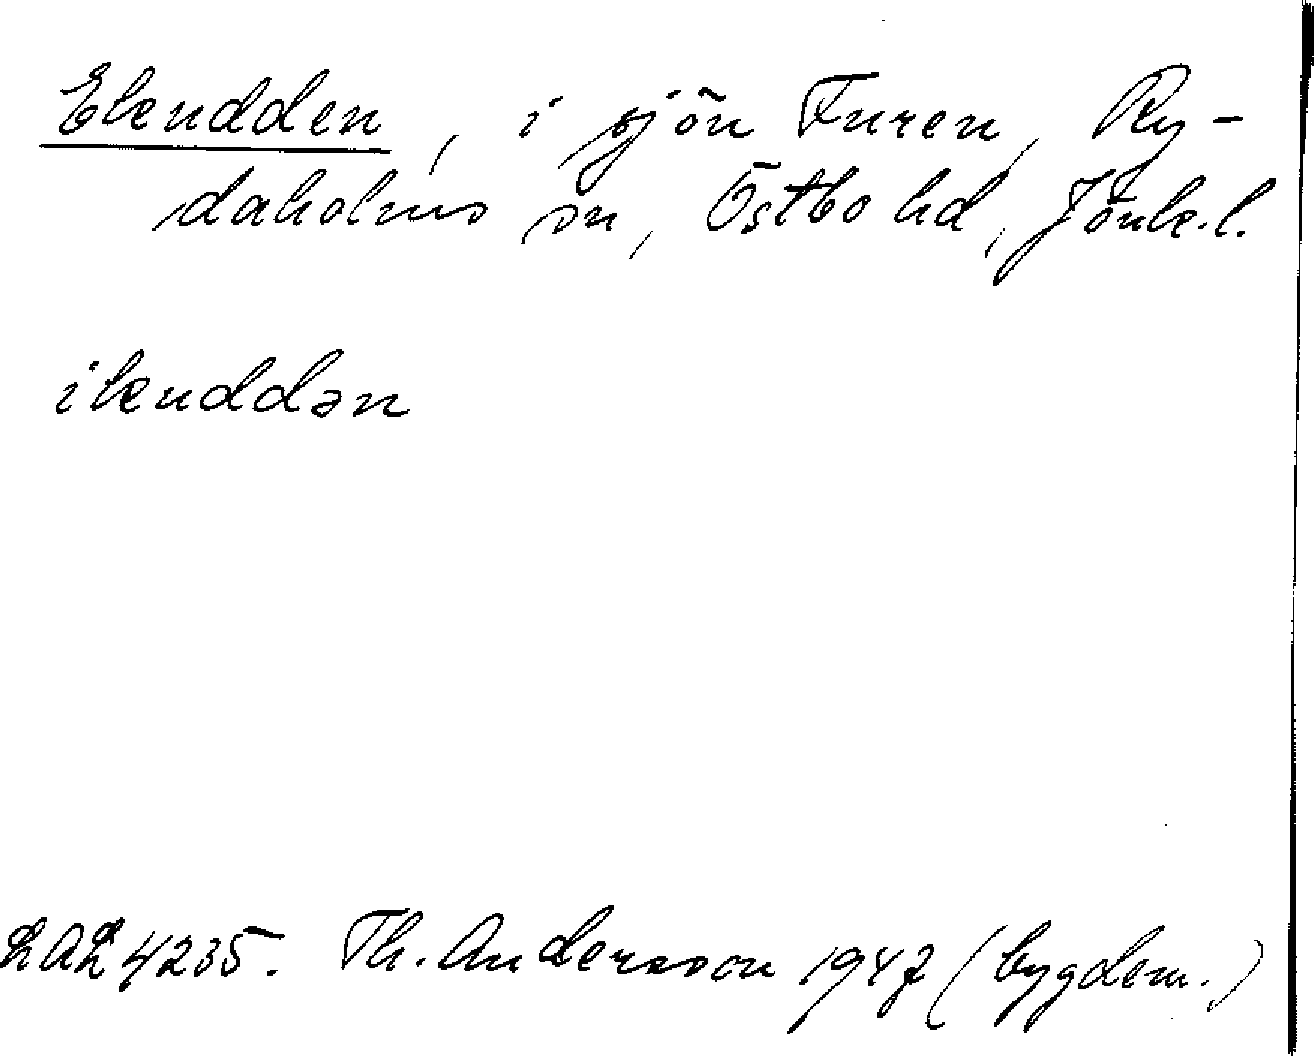 Ekudden, i sjön Furen, Ry-
daholms sn, Östbo hd, Jönk.l.
ikuddən
LAL 4235. Th. Andersson 1947 (bygdem.)